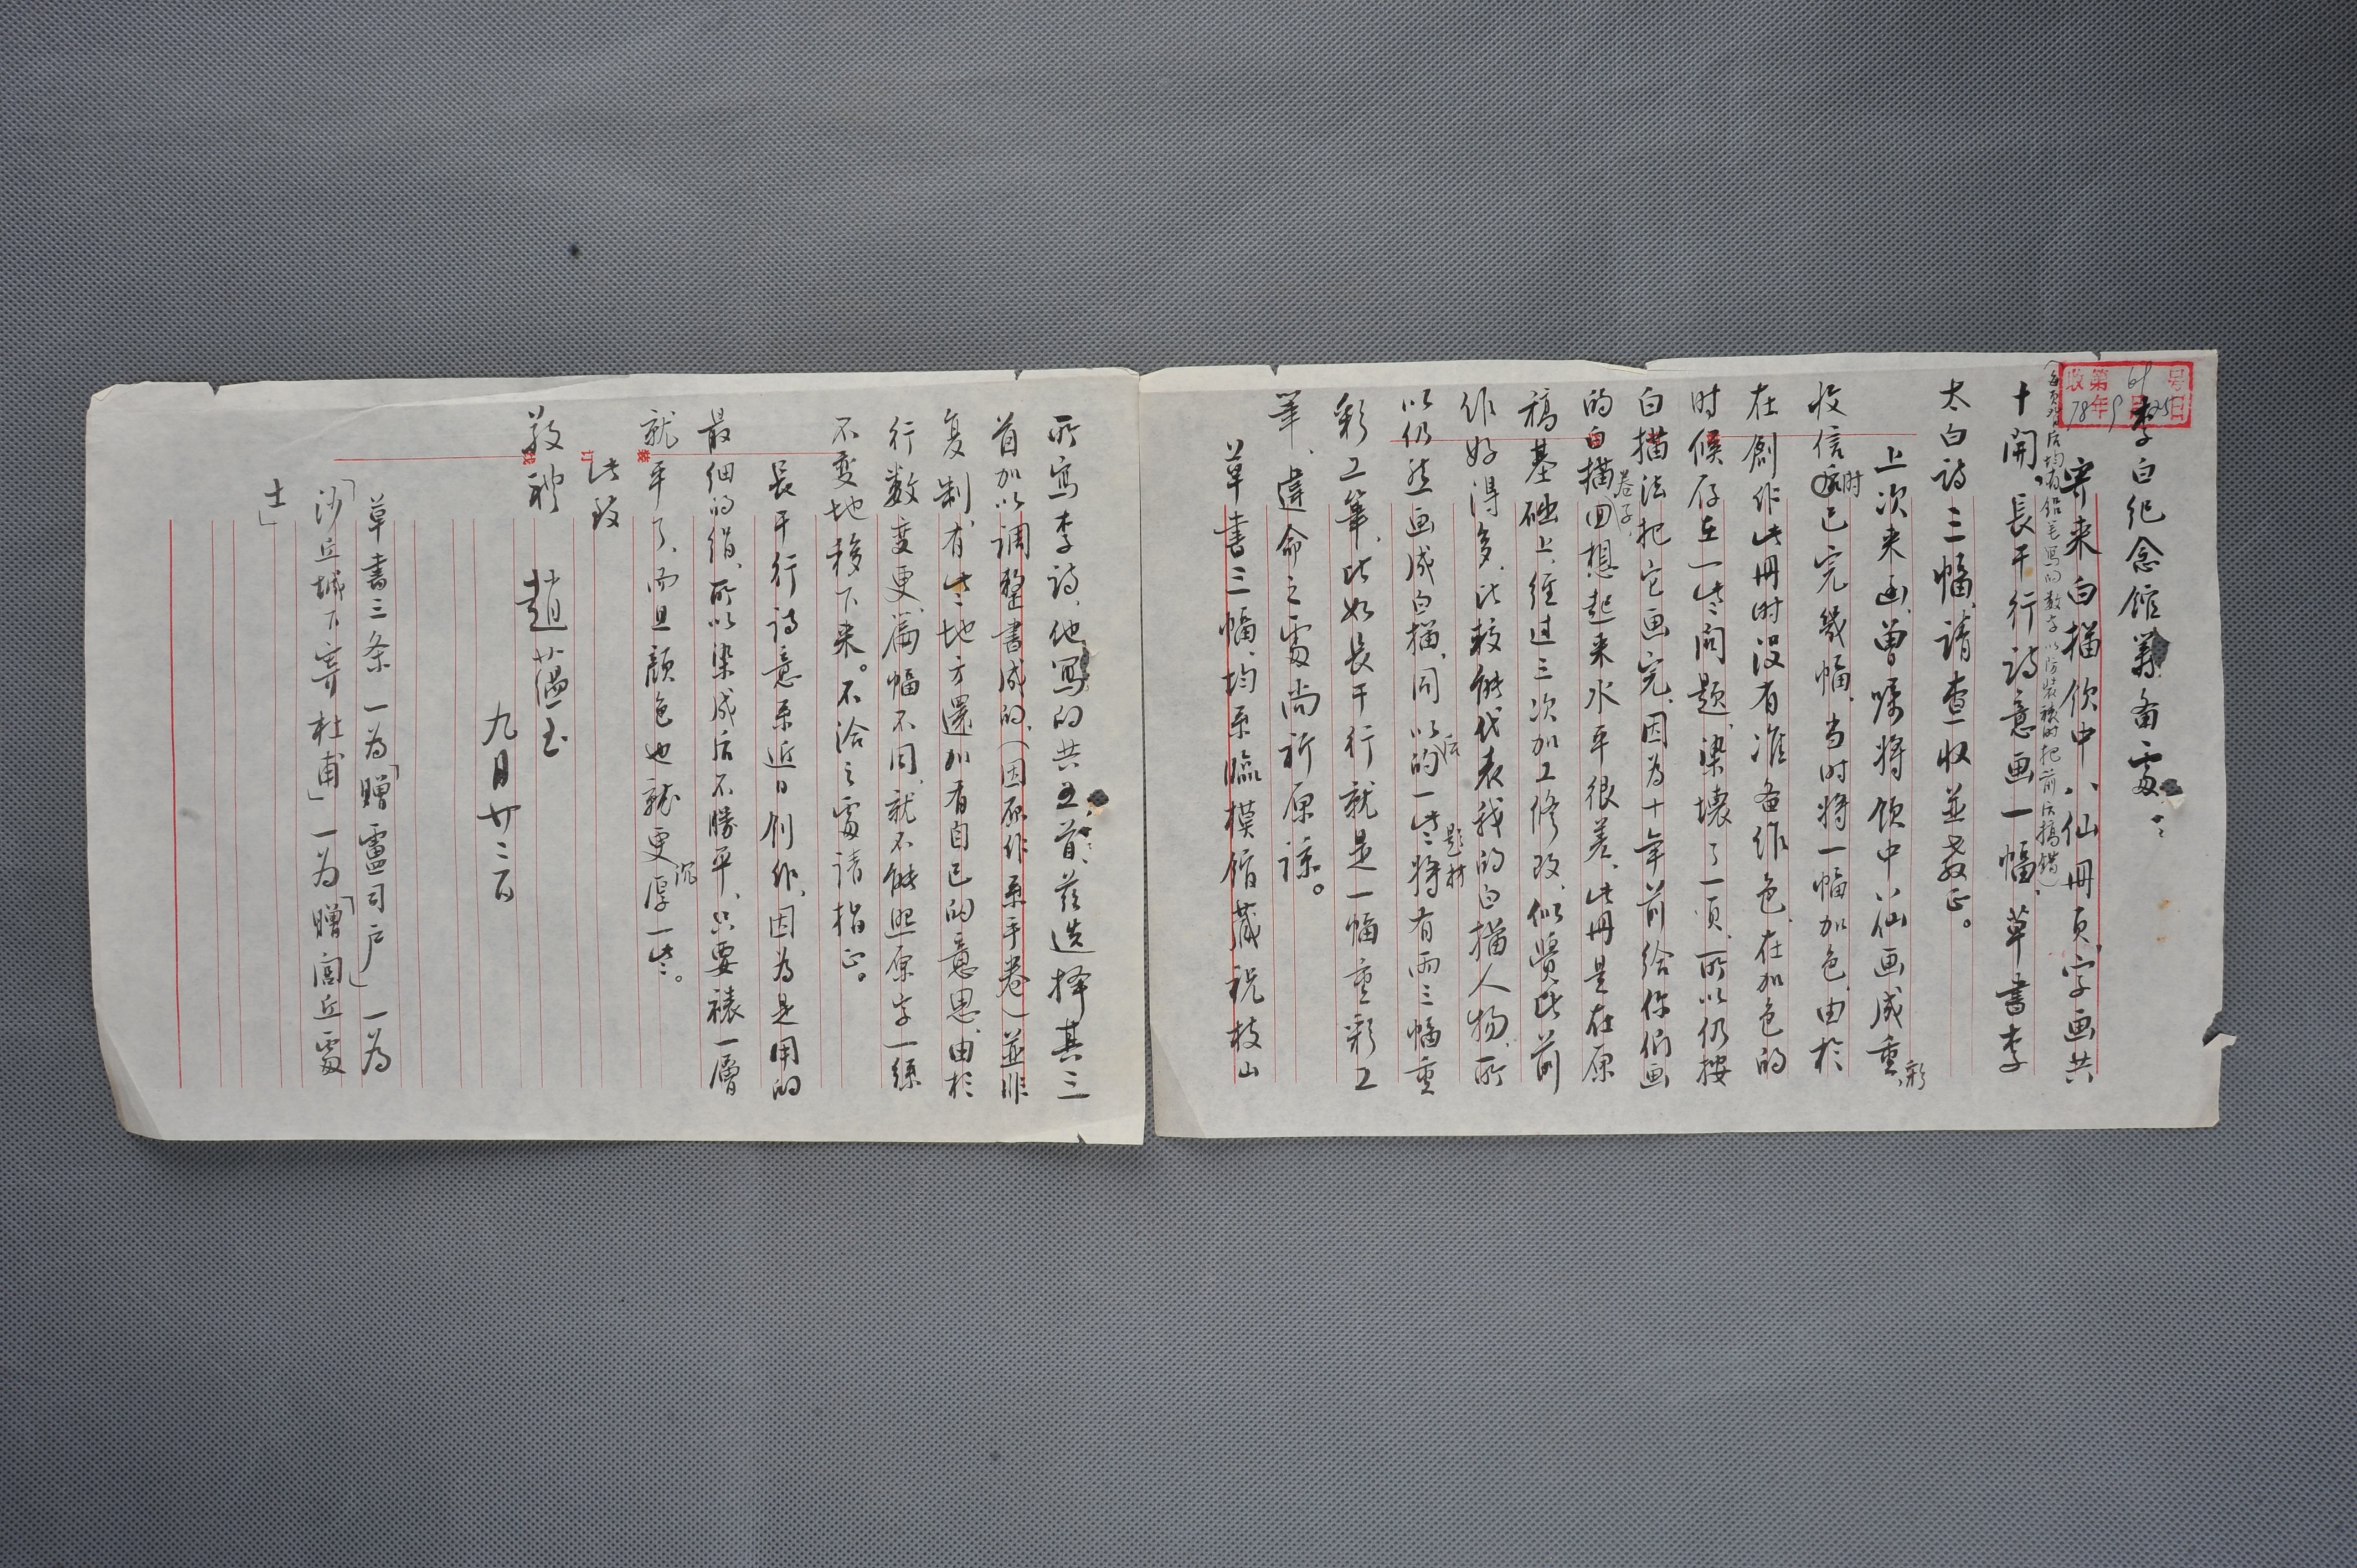 收第61号
78年9月25日
李白纪念馆筹备处:
寄来白描饮中八仙册页,字画共
(每页背后均有铅笔写的数字以防装裱时把前后搞错)
十開。長干行诗意画一幅,草書李
太白诗三幅,请查收並教正。
上次来函,曾嘱将饮中八仙画成重彩,
收信时已完幾幅,当时将一幅加色,由於
在創作此册时没有准备作色,在加色的
时候存在一些问题,染壞了一页,所以仍按
白描法把它画完,因为十年前给你们画
的白描卷子,回想起来水平很差,此册是在原
稿基础上,经过三次加工修改,似覺比前
作好得多,比較能代表我的白描人物,所
以仍然画成白描,同以后的一些题材将有两三幅重
彩工筆,比如長干行就是一幅重彩工
筆,違命之處尚祈原諒。
草書三幅,均系臨模館藏祝枝山
所寫李诗,他寫的共五首,兹选择其三
首加以調整書成的,(因原作系手卷)並非
复制,有些地方還加有自己的意思,由於
行数变更,篇幅不同,就不能照原字一絲
不变地移下来。不洽之處请指正。
長干行诗意系近日创作,因为是用的
最细的绢,所以染成后不勝平,只要裱一層
就平了,而且颜色也就更沉厚一些。
此致
敬禮
趙蕴玉
九月廿三日
草書三条一为「贈盧司户」一为
「沙丘城下寄杜甫」一为「贈閭丘處
士」